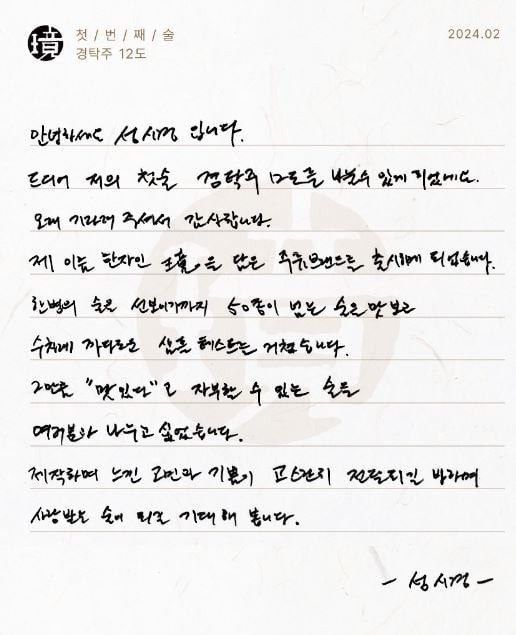 境
첫 / 번 / 째 / 술
경탁주 12도
2024.02
안녕하세요 성시경 입니다.
드디어 저의 첫술 경탁주 12도를 나눌수 있게 되었네요.
오래 기다려 주셔서 감사합니다.
제 이름 한자인 璟을 담은 주류브랜드를 출시하게 되었습니다.
한병의 술을 선보이기까지 50종이 넘는 술을 맛보고
수차례 까다로운 샘플 테스트를 거쳤습니다.
그만큼 "맛있다"고 자부할 수 있는 술을
여러분과 나누고 싶었습니다.
제작하며 느낀 고민과 기쁨이 고스란히 전달되길 바라며
사랑받는 술이 되길 기대해 봅니다.
- 성시경 -